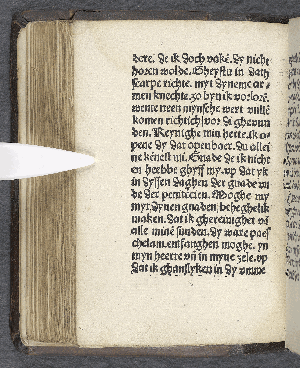 dere. de ik doch vakē. dy nicht
horen wolde. Gheystu in dath
scarpe richte. myt dyneme ar-
men knechte. so byn ik vorlorē.
wente neen mynsche wert vulle
komen richtich vor di ghewun
den. Reynighe min herte. ik o-
pene dy dat openbaer. Du allei
ne kenest mi. Gnade de ik nicht
en hebbe ghyff my. vp dat ik
in dyssen daghen der gnade vn
de der penitencien. Moghe my
myt dynen gnaden beheghelik
maken. dat ik ghereinighet vā
alle minē sunden. dy ware paes
chelam. entfanghen moghe. yn
myn heerte vñ in myne zele. vp
dat ik ghansliken in dy vmme